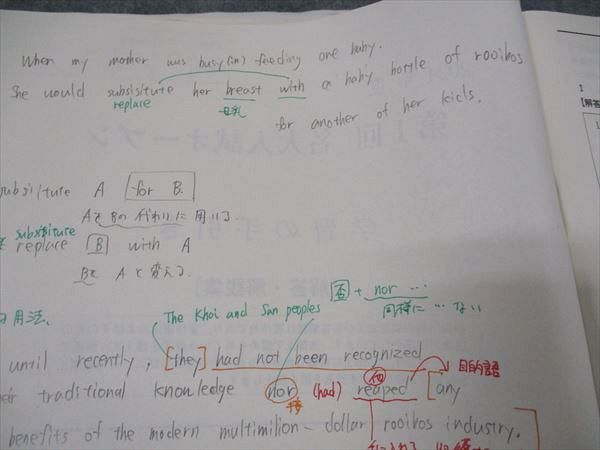 When my mother was busy (in) feeding one baby.
She would subsisitute her breast with a baby bottle of rooibos
replace
母乳
for another of her kids.
subsiture A for B.
AをBの代わりに用いる.
subsiture
replace B with A
BをAと変える.
用法.
The Khoi and San peoples
否 + nor …
同様に … ない
until recently, [they] had not been recognized
traditional knowledge nor (had) reaped [any
接
他
目的語
benefits of the modern multimilion-dollar rooibos industry.
1
[解答